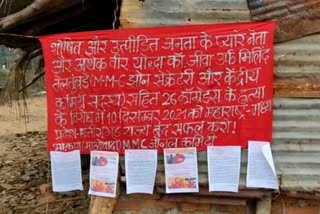 शोषित और उत्पीड़ित जनता के प्यारे नेता
और अथक वीर योद्धा का. जीवा उर्फ मिलिंद
तेलतुंबडे (M.M.C जोन सेक्रेटरी और केंद्रीय
कमिटी सदस्य) सहित 26 कॉमरेडस के हत्या
के विरोध में 10 दिसम्बर 2021 को महाराष्ट्र-मध्य
प्रदेश-छत्तीसगढ़ राज्य बंद सफल करो!
भाकपा (माओवादी) M.M.C जोनल कमिटी